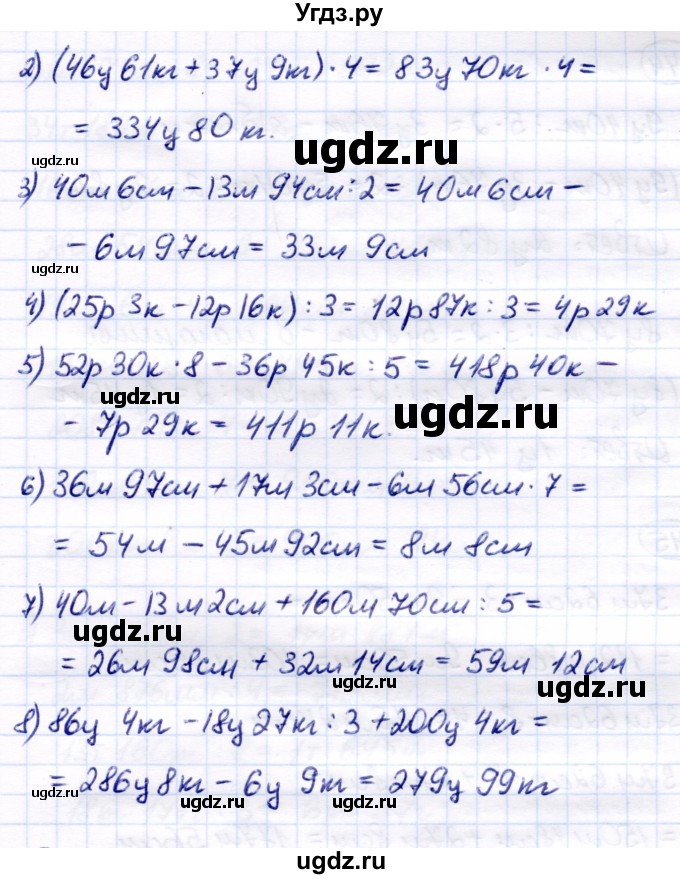 Угдз.ру
2) (46ц 61кг + 37ц 9кг) · 4 = 83ц 70кг · 4 =
= 334ц 80 кг.
ugdz.ru
ugdz.ru
3) 40м 6см - 13м 94см : 2 = 40м 6см -
- 6м 97см = 33м 9см
ugdz.ru
4) (25р 3к - 12р 16к) : 3 = 12р 87к : 3 = 4р 29к
5) 52р 30к · 8 - 36р 45к : 5 = 418р 40к -
ugdz.ru
ugdz.ru
- 7р 29к = 411р 11к.
6) 36м 97см + 17м 3см - 6м 56см · 7 =
= 54м - 45м 92см = 8м 8см
7) 40м - 13м 2см + 160м 70см : 5 =
ugdz.ru
= 26м 98см + 32м 14см = 59м 12см
ugdz.ru
8) 86ц 4кг - 18ц 27кг : 3 + 200ц 4кг =
= 286ц 8кг - 6ц 9кг = 279ц 99кг
ugdz.ru
ugdz.ru
ugdz.ru